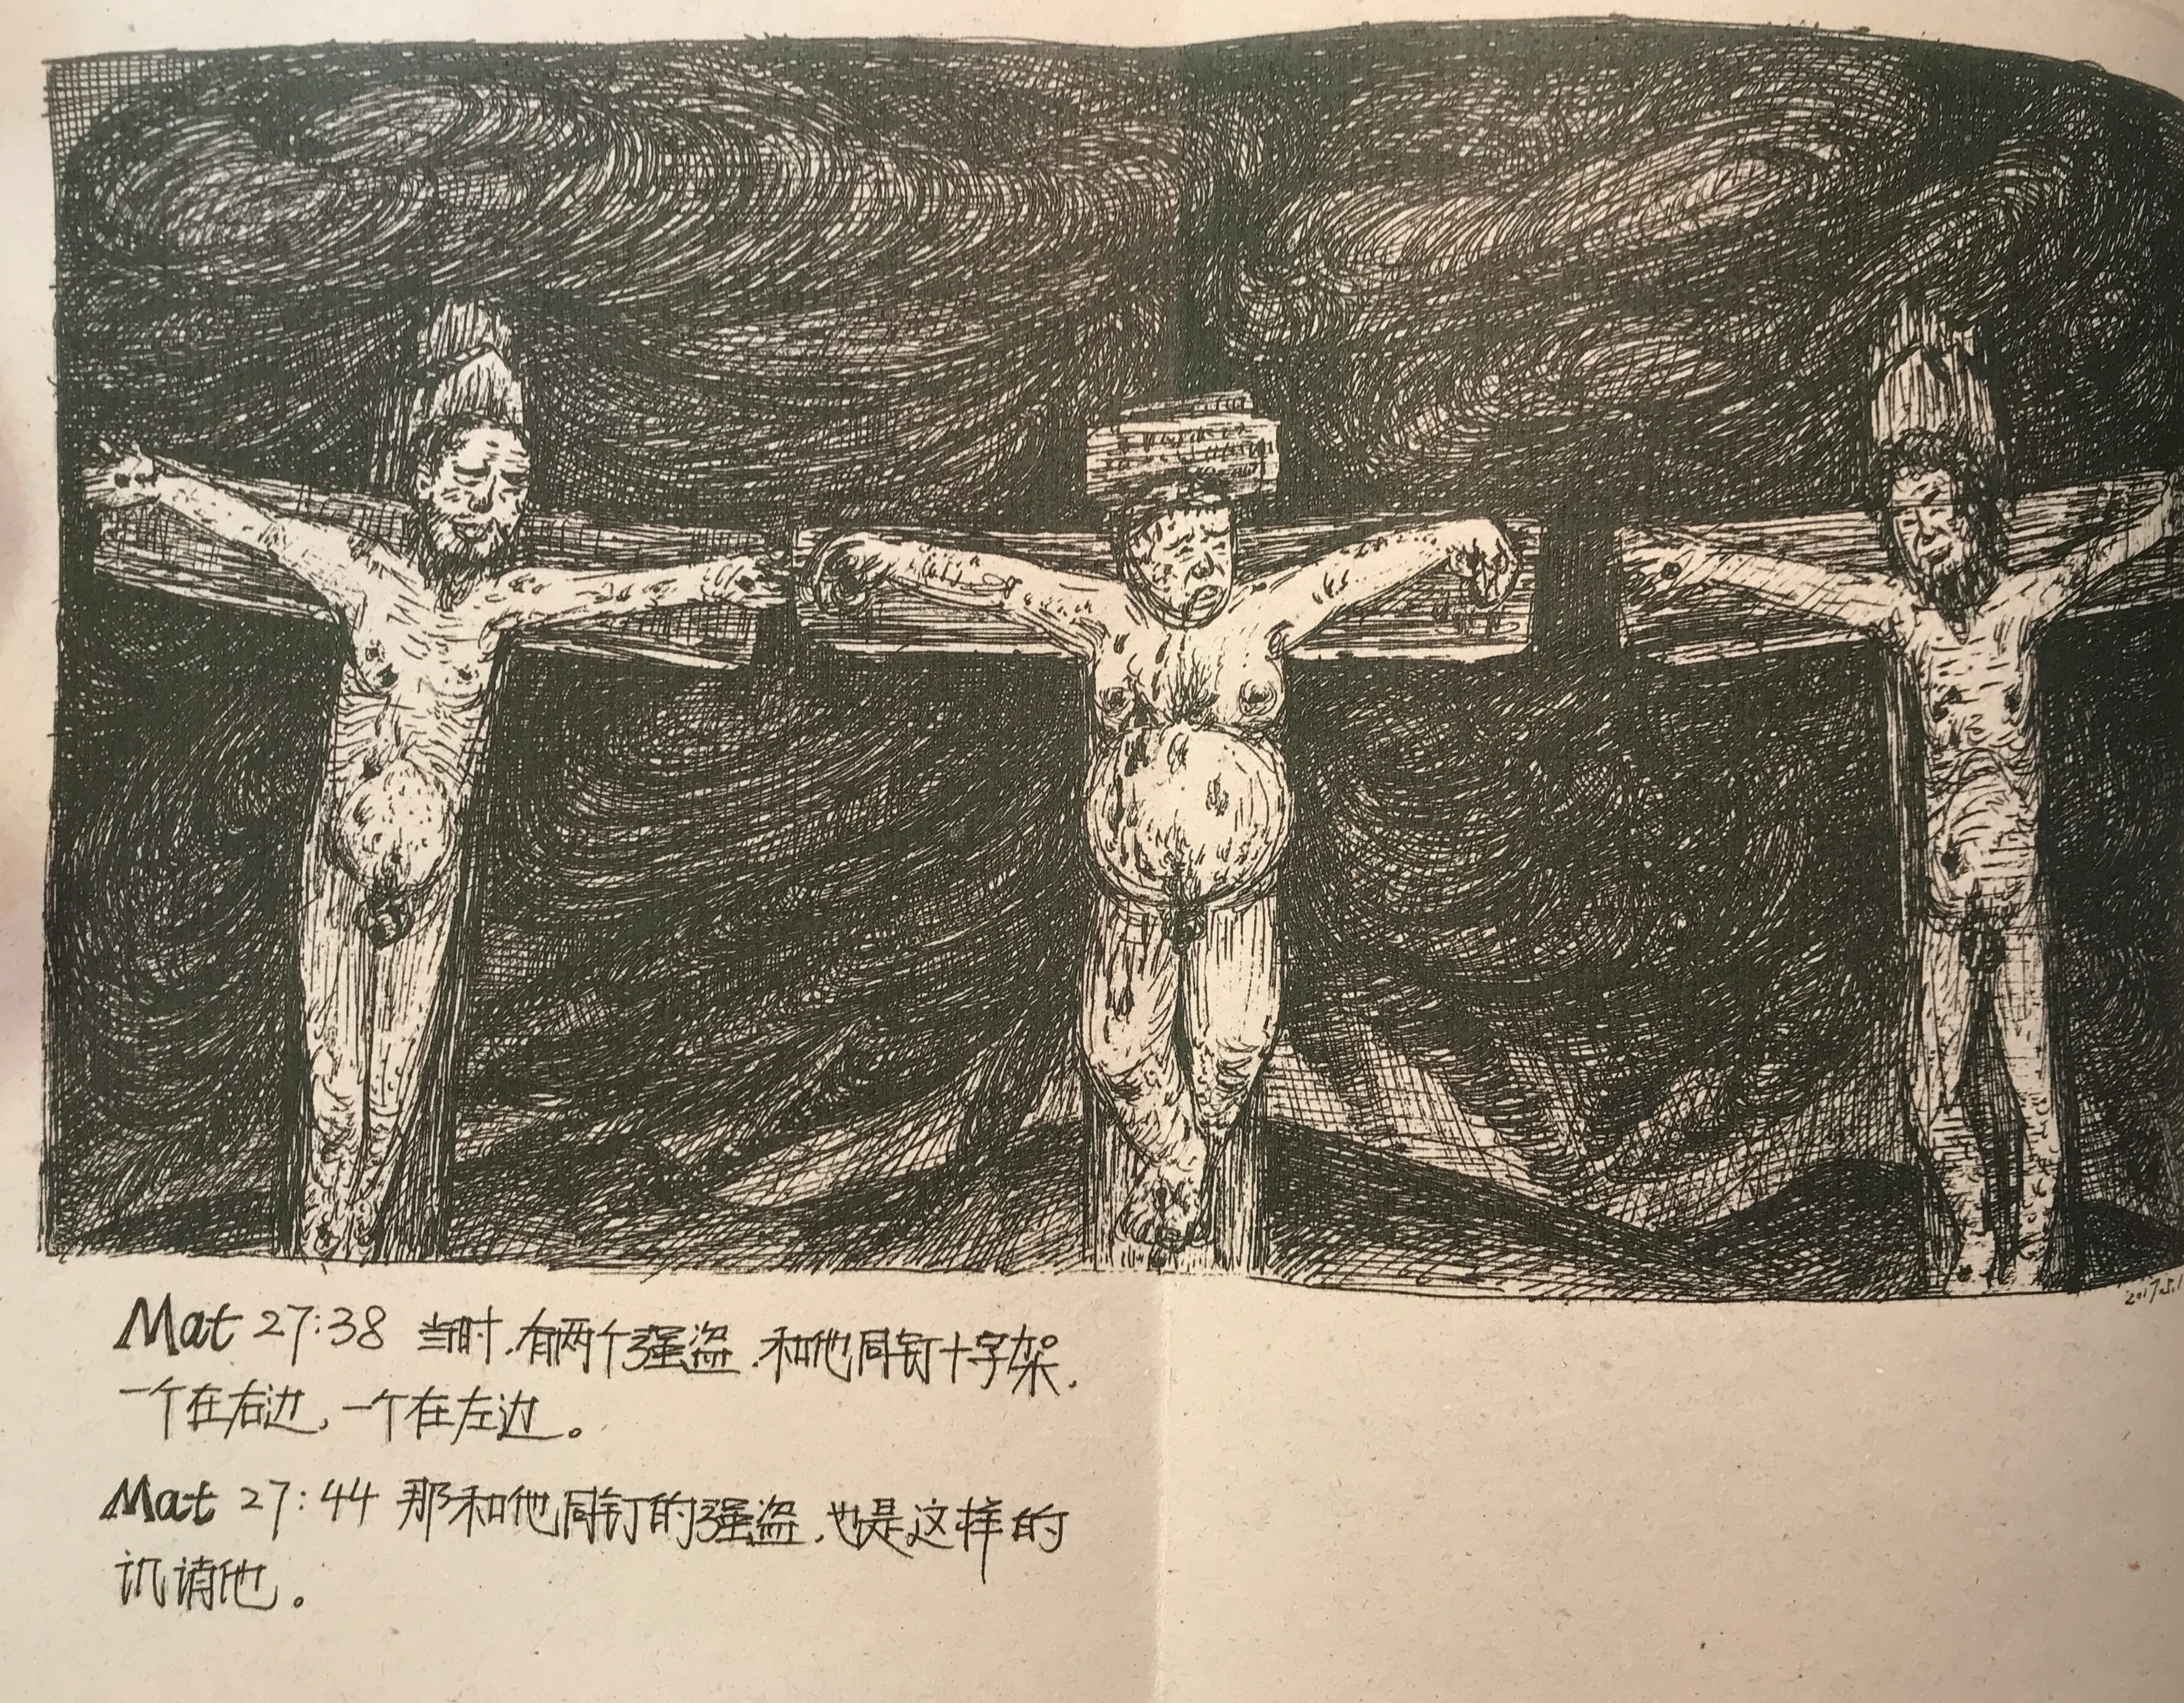 Mat 27:38 当时,有两个强盗,和他同钉十字架,
一个在右边,一个在左边。
Mat 27:44 那和他同钉的强盗,也是这样的
讥诮他。